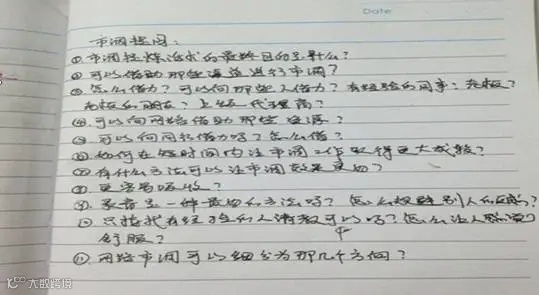 Date
市调提问：
① 市调提炼话术的最终目的是什么？
② 可以借助那些渠道进行市调？
③ 怎么借力？可以向那些人借力？有经验的同事？老板？
老板的朋友？上级代理商？
④ 可以向网络借助那些资源？
⑤ 可以向同行借力吗？怎么借？
⑥ 如何在短时间内让市调工作取得更大成效？
⑦ 有什么方法可以让市调效果更好？
⑧ 更容易吸收？
⑨ 录音是一种最好的方法吗？怎么权衡别人的反感？
⑩ 只找找有经验的人请教可以吗？怎么让人际
舒服？
⑪ 网络市调可以细分为那几个方向？
大数跨境